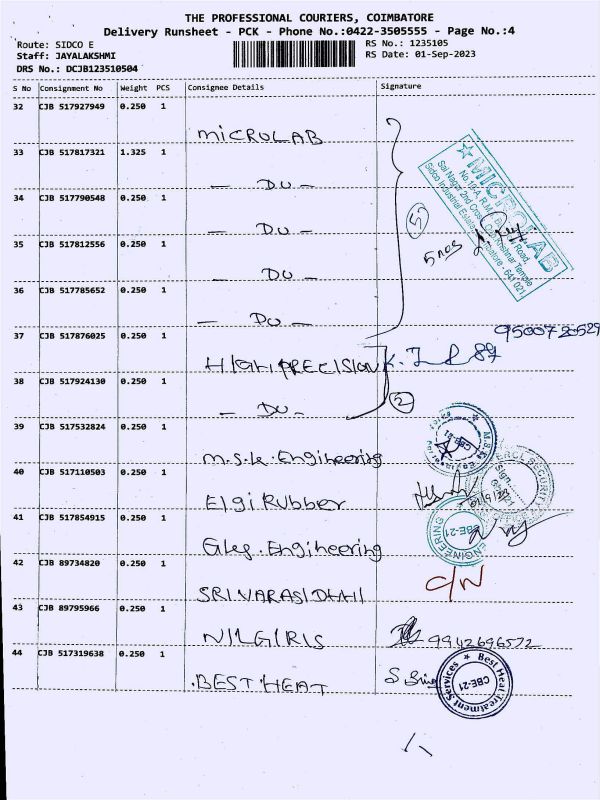 THE PROFESSIONAL COURIERS, COIMBATORE
Delivery Runsheet - PCK - Phone No.:0422-3505555 - Page No.:4
Route: SIDCO E RS No.: 1235105
Staff: JAYALAKSHMI RS Date: 01-Sep-2023
DRS No.: DCJB123510504
S No Consignment No Weight PCS Consignee Details Signature
32 CJB 517927949 0.250 1
MICROLAB
33 CJB 517817321 1.325 1
— Do —
34 CJB 517790548 0.250 1
— Do —
35 CJB 517812556 0.250 1
— Do —
36 CJB 517785652 0.250 1
— Do —
MICROLAB
Sidco Industrial Estate
641 021
5
5 nos
37 CJB 517876025 0.250 1
HIGH PRECISION
38 CJB 517924130 0.250 1
— Do —
2
39 CJB 517532824 0.250 1
M.S.K. Engineering
40 CJB 517110503 0.250 1
Elgi Rubber
41 CJB 517854915 0.250 1
Engineering
SECURITY
ENGINEERING
CBE-21
42 CJB 89734820 0.250 1
C/N
43 CJB 89795966 0.250 1
NILGIRIS
9942696572
44 CJB 517319638 0.250 1
BEST HEAT
Best Heat Treatment Services
CBE-21